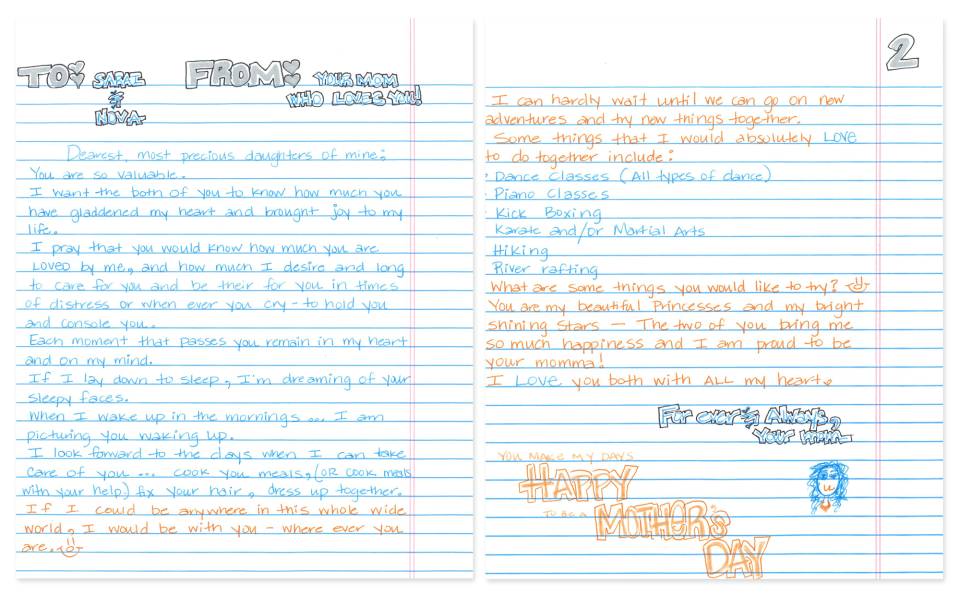 TO: SARAI & NOVA
FROM: YOUR MOM WHO LOVES YOU!
Dearest, most precious daughters of mine:
You are so valuable.
I want the both of you to know how much you
have gladdened my heart and brought joy to my
life.
I pray that you would know how much you are
LOVED by me, and how much I desire and long
to care for you and be their for you in times
of distress or when ever you cry - to hold you
and console you.
Each moment that passes you remain in my heart
and on my mind.
If I lay down to sleep, I'm dreaming of your
sleepy faces.
When I wake up in the mornings ... I am
picturing you waking up.
I look forward to the days when I can take
care of you ... cook you meals, (OR COOK meals
with your help.) fix your hair, dress up together.
If I could be anywhere in this whole wide
world, I would be with you - where ever you
are.
2
I can hardly wait until we can go on new
adventures and try new things together.
Some things that I would absolutely LOVE
to do together include:
· Dance Classes (All types of dance)
· Piano Classes
· Kick Boxing
Karate and/or Martial Arts
Hiking
River rafting
What are some things you would like to try?
You are my beautiful Princesses and my bright
shining stars — The two of you bring me
so much happiness and I am proud to be
your momma!
I LOVE you both with ALL my heart.
For ever & Always,
Your mom
YOU MAKE MY DAYS
HAPPY
TO BE A
MOTHER'S
DAY